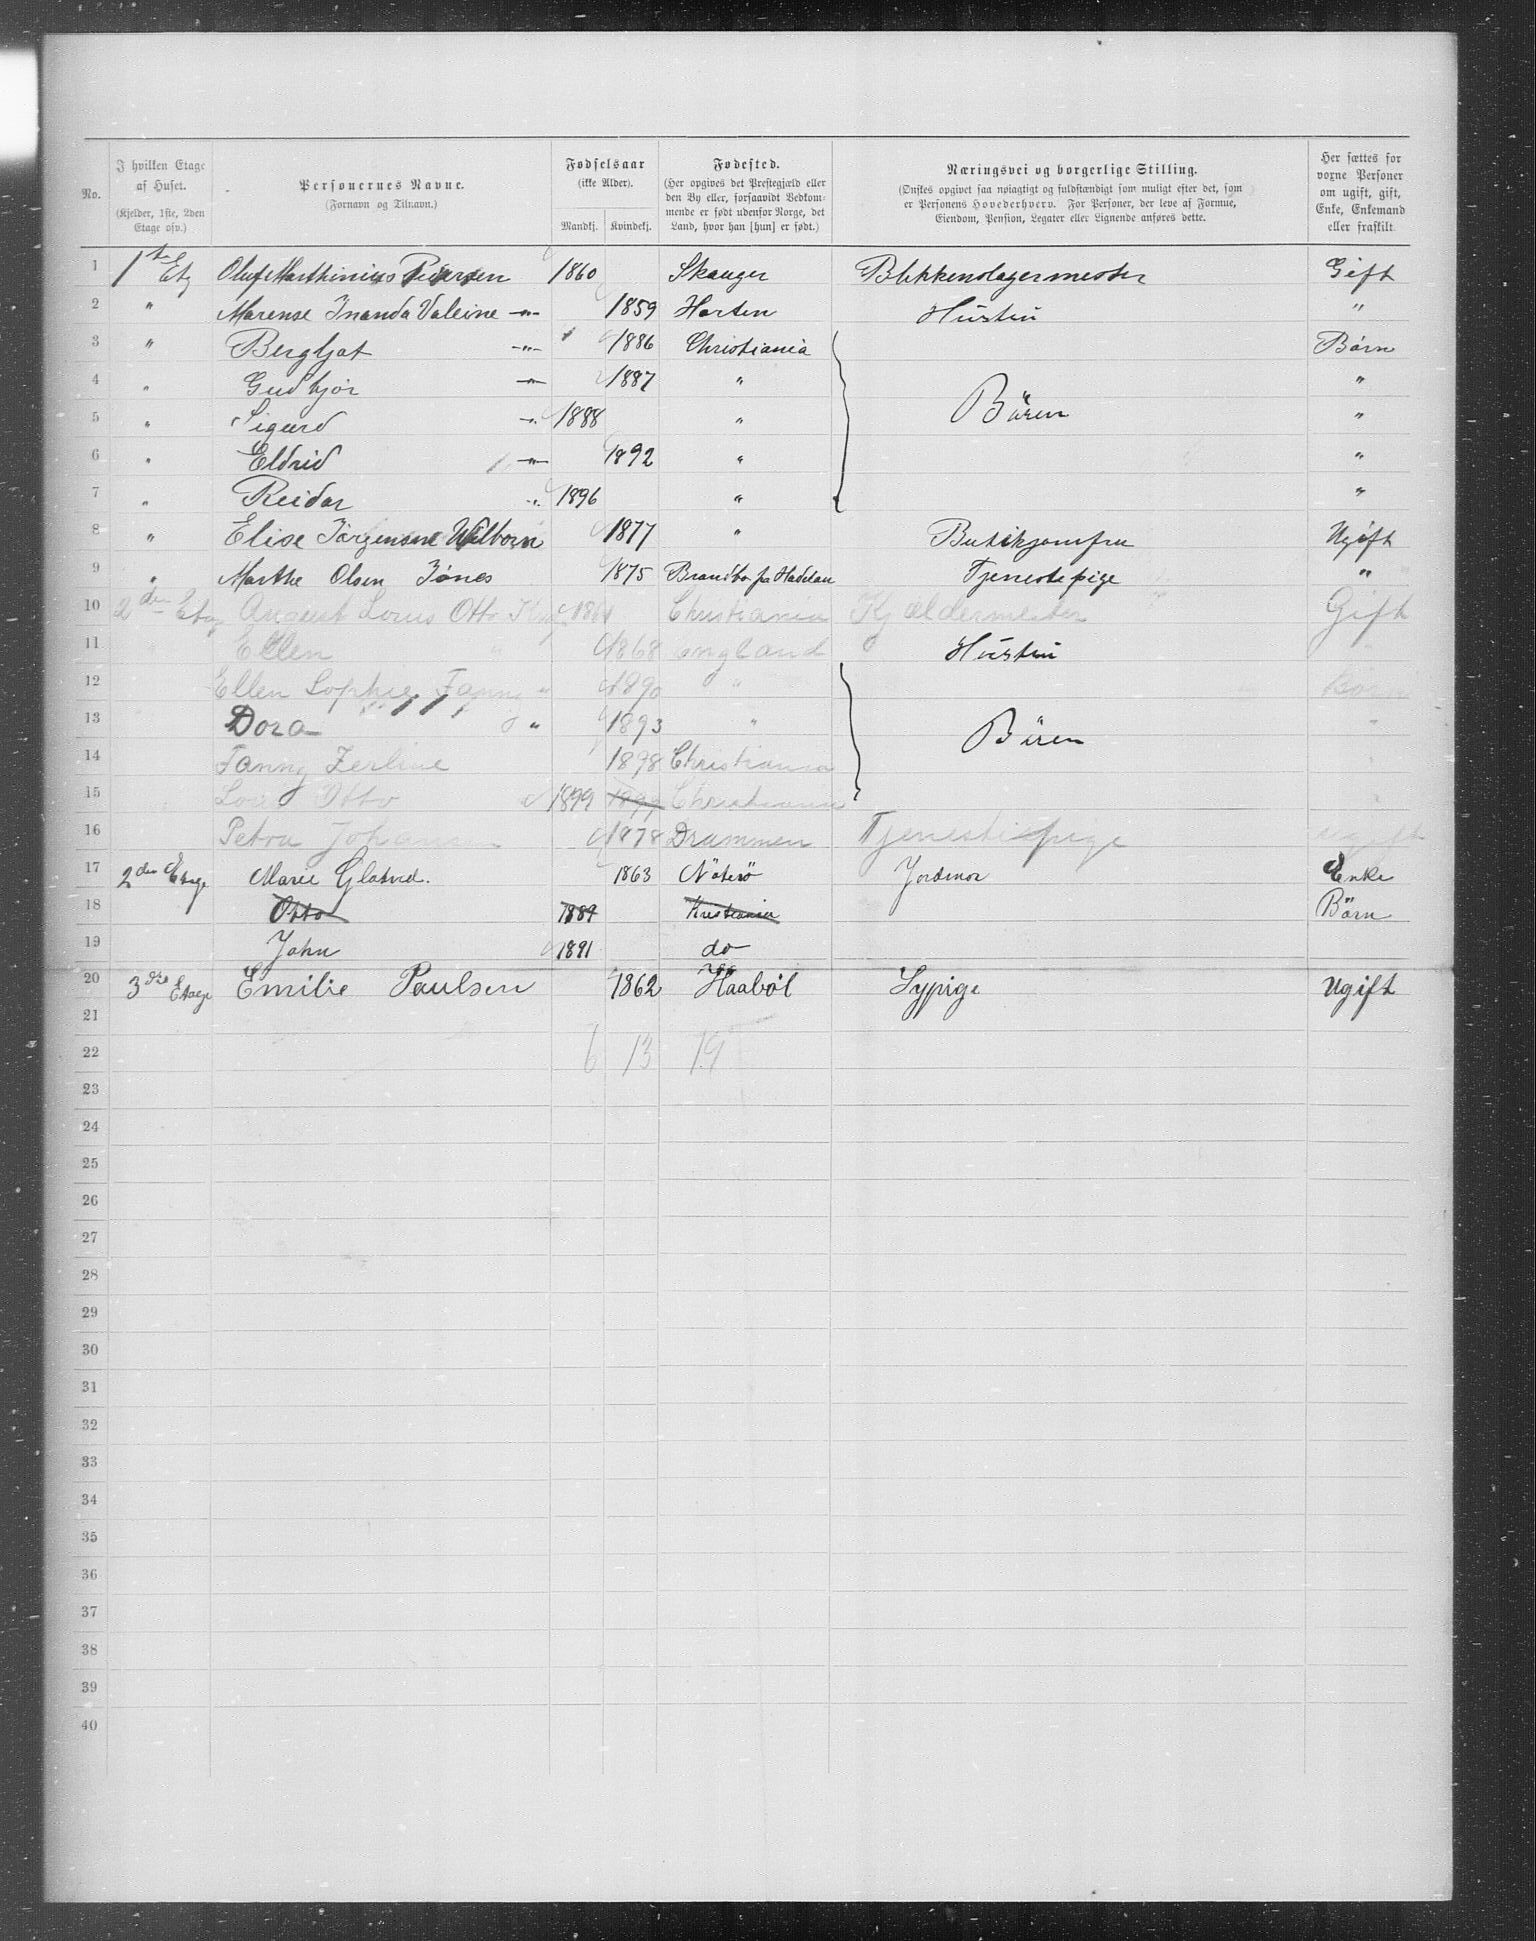 No.
I hvilken Etage af Huset. (Kjelder, 1ste, 2den Etage osv.)
Personernes Navne. (Fornavn og Tilnavn.)
Fødselsaar (ikke Alder).
Mandkj. Kvindekj.
Fødested. (Her opgives det Prestegjæld eller den By eller, forsaavidt Vedkommende er født udenfor Norge, det Land, hvor han [hun] er født.)
Næringsvei og borgerlige Stilling. (Ønskes opgivet saa nøiagtigt og fuldstændigt som muligt efter det, som er Personens Hovederhverv. For Personer, der leve af Formue, Eiendom, Pension, Legater eller Lignende anføres dette.
Her sættes for voxne Personer om ugift, gift, Enke, Enkemand eller fraskilt.
1 1ste Etg Oluf Marthinius Pedersen 1860 Skauger Blikkenslagermester Gift
2 " Marense Inanda Valeine —"— 1859 Horten Hustru "
3 " Bergljot —"— 1886 Christiania Börn
4 " Gudbjör —"— 1887 " "
5 " Sigurd —" 1888 " Bören "
6 " Eldrid —"— 1892 " "
7 " Reidar " 1896 " "
8 " Elise Jörgensene Wilborn 1877 " Butikjomfru Ugift
9 " Marthe Olsen 1875 Brandbo pa Hadelan Tjenestepige "
10 2den Etag August Louis Otto Christiania Kjældermester Gift
11 Ellen " 1868 England Hustru
12 Ellen Sophie Fanny " 1890 " Börn
13 Dora " 1893 " Bören "
14 Fanny Zerline 1898 Christiania
15 Louis Otto 1899 1899 Christiania
16 Petra Johansen 1878 Drammen Tjenestepige ugift
17 2den Etage Marie Glatved. 1863 Nöterö Jordmor Enke
18 Otto 1889 Kristiania Börn
19 John 1891 do
20 3die Etage Emilie Paulsen 1862 Haaböl Sypige Ugift
21
22 6 13 19
23
24
25
26
27
28
29
30
31
32
33
34
35
36
37
38
39
40